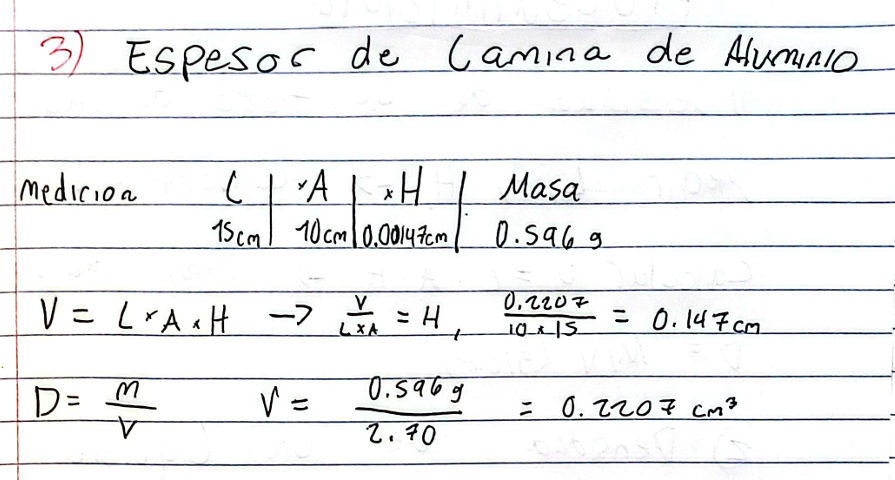 3) Espesor de Lamina de Aluminio
medicion L | ×A | ×H | Masa
15cm | 10cm | 0.00147cm | 0.596 g
V = L × A × H → V/L×A = H, 0.2207/10×15 = 0.147cm
D = m/V V = 0.596 g/2.70 = 0.2207 cm³